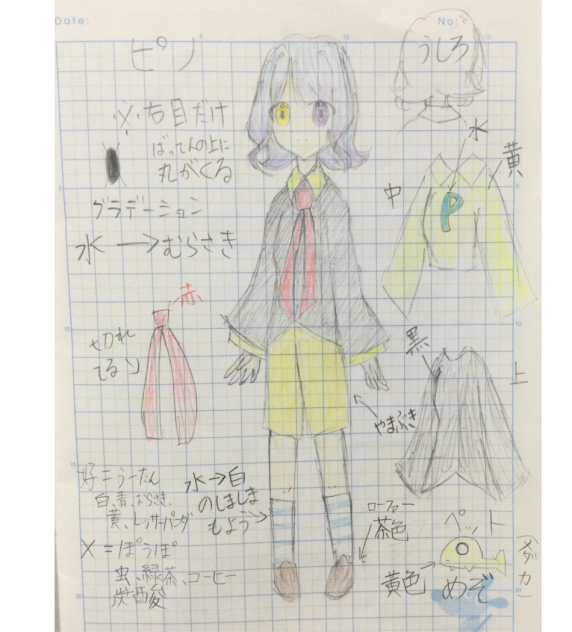 Date:
No:
ピノ
うしろ
右目だけ
ばってんの上に
丸がくる
グラデーション
水→むらさき
赤
切れ
てる
水
黄
中
P
黒
上
やまぶき
好=うーたん
白、青、むらさき、
黄、レッサーパンダ
X=ぽうぽ
虫、緑茶、コーヒー
炭酸
水→白
のしましま
もよう→
ローファー
茶色
ペット
黄色→
めぞ
(メダカ)